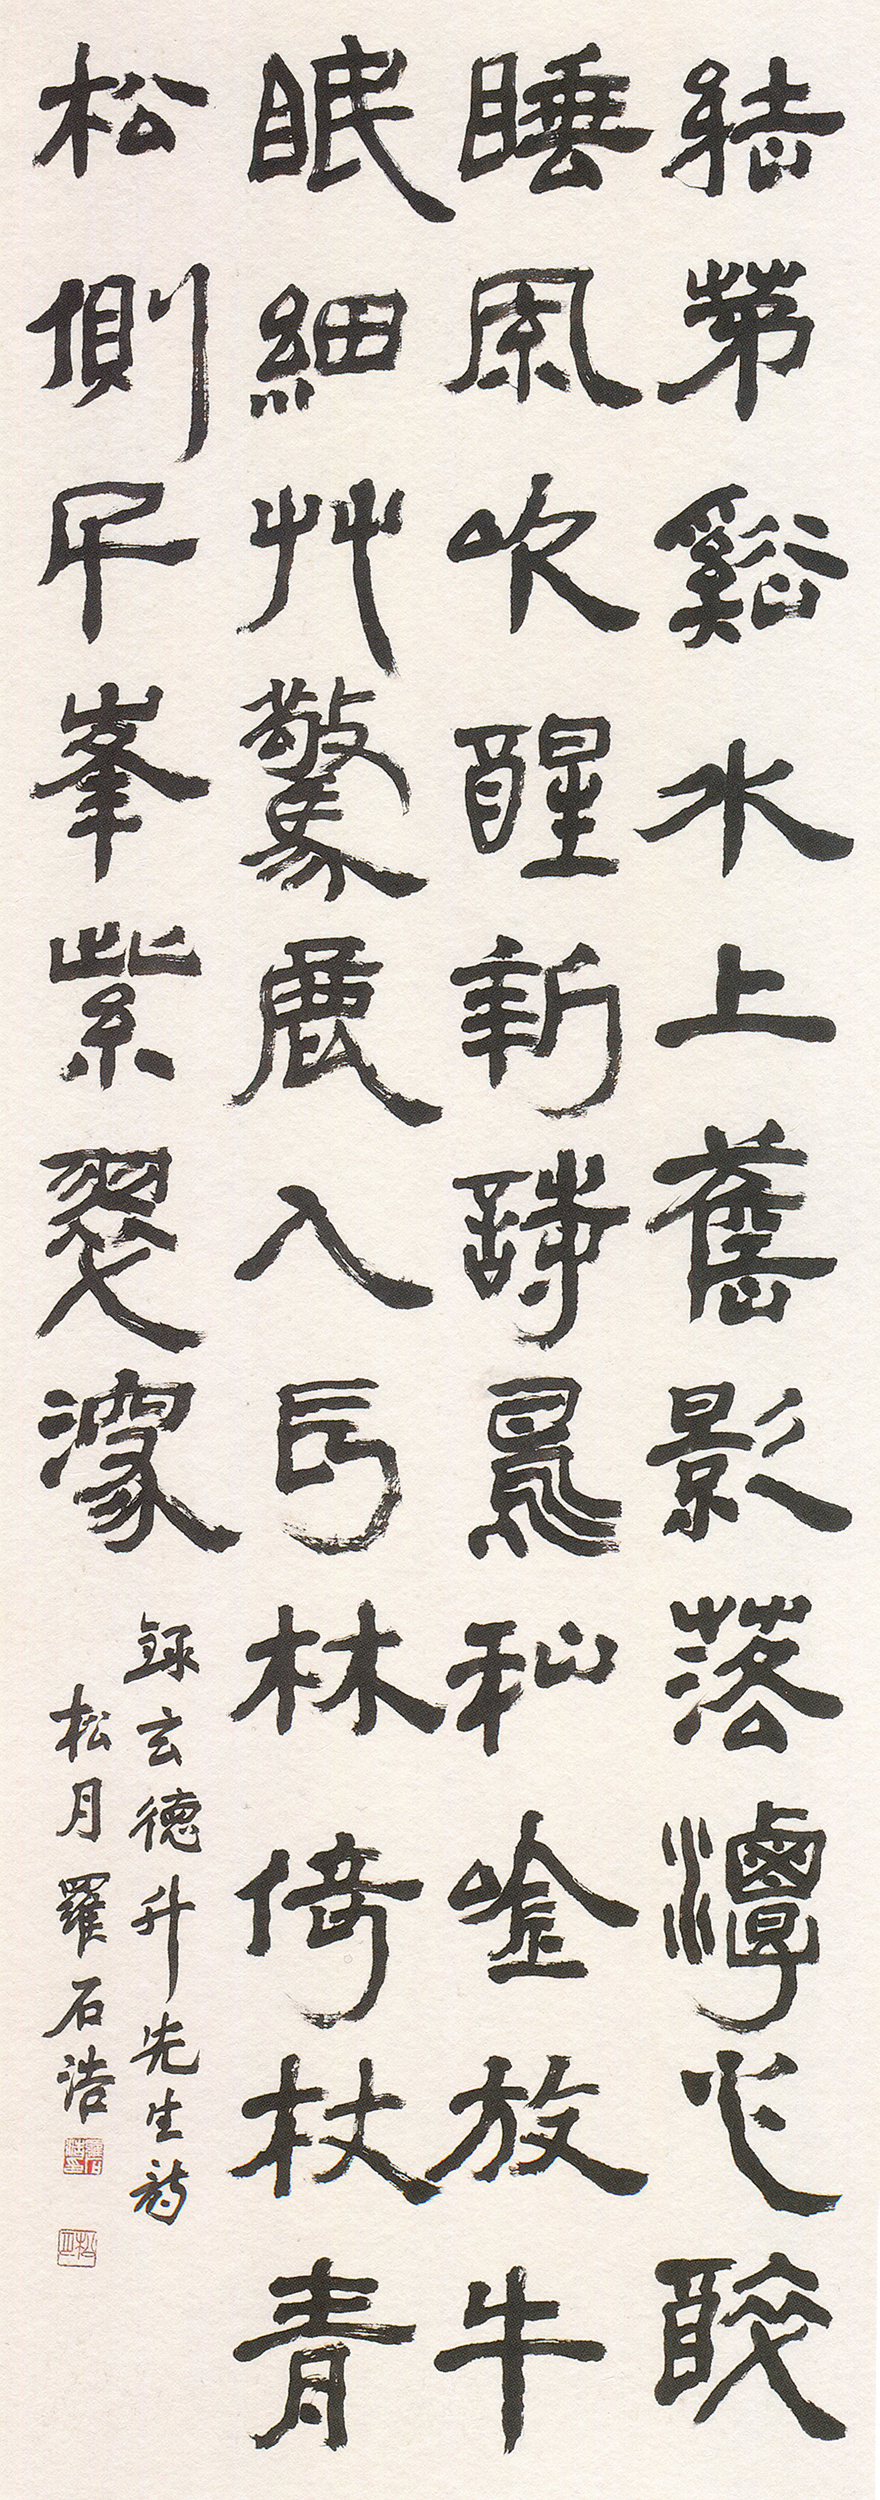 結茅谿水上舊影落潭心醉
睡風吹醒新詩鳥和唫放牛
眠細艸驚鹿入長林倚杖青
松側千峯紫翠深
録玄德升先生詩
松月羅石浩